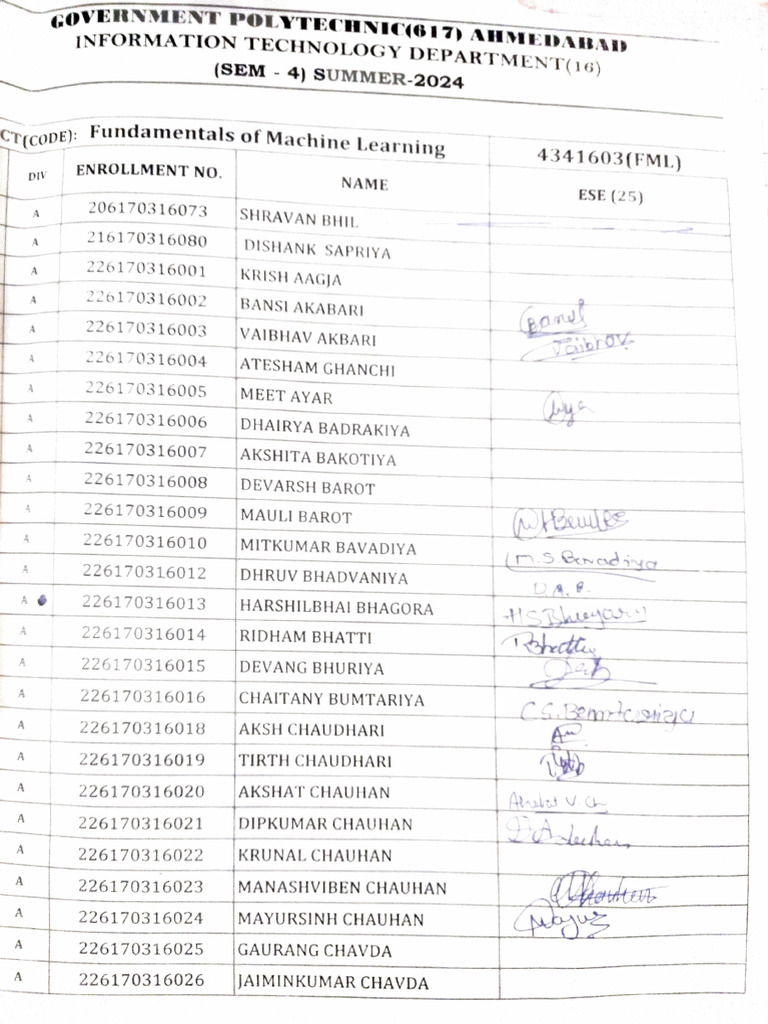 GOVERNMENT POLYTECHNIC(617) AHMEDABAD
INFORMATION TECHNOLOGY DEPARTMENT(16)
(SEM - 4) SUMMER-2024
CT(CODE): Fundamentals of Machine Learning 4341603(FML)
DIV ENROLLMENT NO. NAME ESE (25)
A 206170316073 SHRAVAN BHIL
A 216170316080 DISHANK SAPRIYA
A 226170316001 KRISH AAGJA
A 226170316002 BANSI AKABARI Bansi
A 226170316003 VAIBHAV AKBARI Vaibhav
A 226170316004 ATESHAM GHANCHI
A 226170316005 MEET AYAR
A 226170316006 DHAIRYA BADRAKIYA
A 226170316007 AKSHITA BAKOTIYA
A 226170316008 DEVARSH BAROT
A 226170316009 MAULI BAROT
A 226170316010 MITKUMAR BAVADIYA M.S.Bavadiya
A 226170316012 DHRUV BHADVANIYA
A 226170316013 HARSHILBHAI BHAGORA
A 226170316014 RIDHAM BHATTI RBhatti
A 226170316015 DEVANG BHURIYA
A 226170316016 CHAITANY BUMTARIYA
A 226170316018 AKSH CHAUDHARI
A 226170316019 TIRTH CHAUDHARI
A 226170316020 AKSHAT CHAUHAN Akshat V Ch
A 226170316021 DIPKUMAR CHAUHAN
A 226170316022 KRUNAL CHAUHAN
A 226170316023 MANASHVIBEN CHAUHAN
A 226170316024 MAYURSINH CHAUHAN
A 226170316025 GAURANG CHAVDA
A 226170316026 JAIMINKUMAR CHAVDA